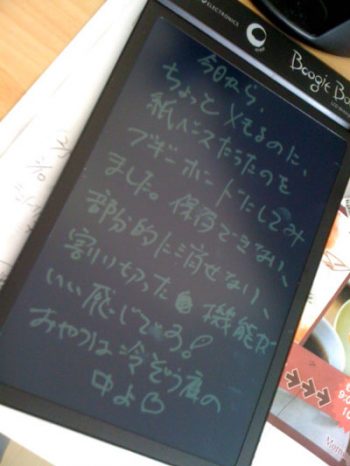 ELECTRONICS
Boogie Bo
今日から、
ちょっとメモるのに、
紙ベースだったのを
ブギーボードにしてみ
ました。保存できない、
部分的に消せない、
割り切った機能が
いい感じです!
おやつは冷ぞう庫の
中よ